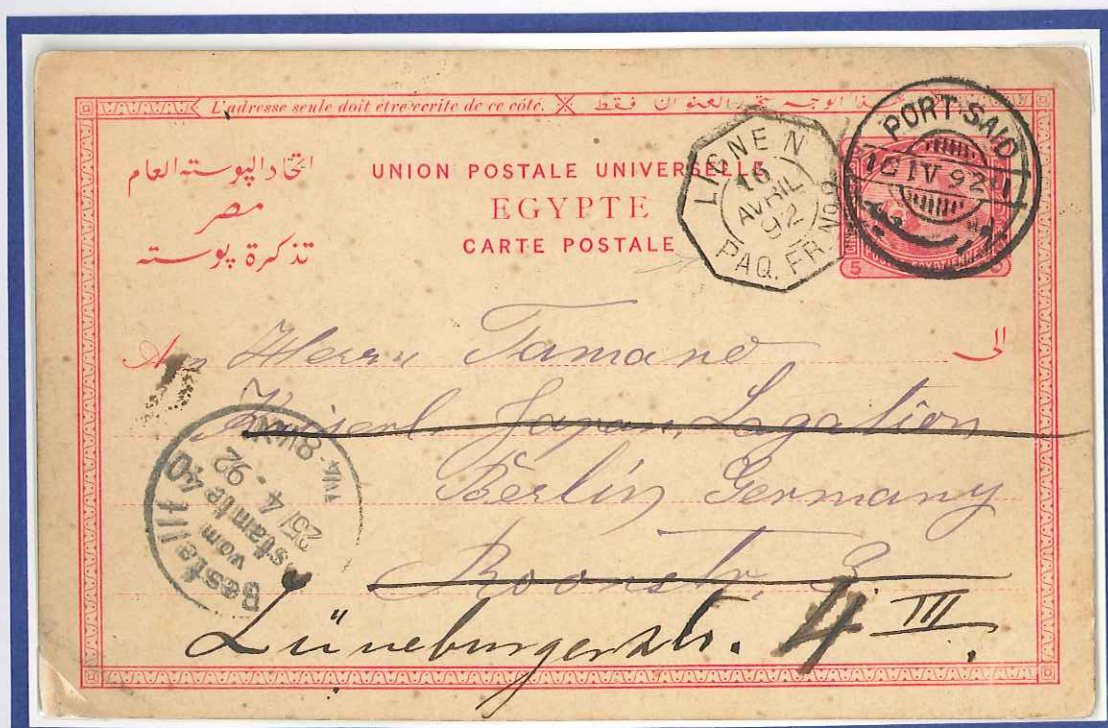 L'adresse seule doit être écrite de ce côté. هذا الوجه مخصوص للعنوان فقط
اتحاد البوسته العام
مصر
تذكرة بوسته
UNION POSTALE UNIVERSELLE
EGYPTE
CARTE POSTALE
LIGNE N
16
AVRIL
92
PAQ. FR. No
PORT-SAID
IV 92
5
An Herrn Tamano
الى
Kaiserl. Japan. Legation
Berlin Germany
Roonstr. 3
Lüneburgerstr. 4 III.
Bestellt
vom
Postamte 40
25/4.92